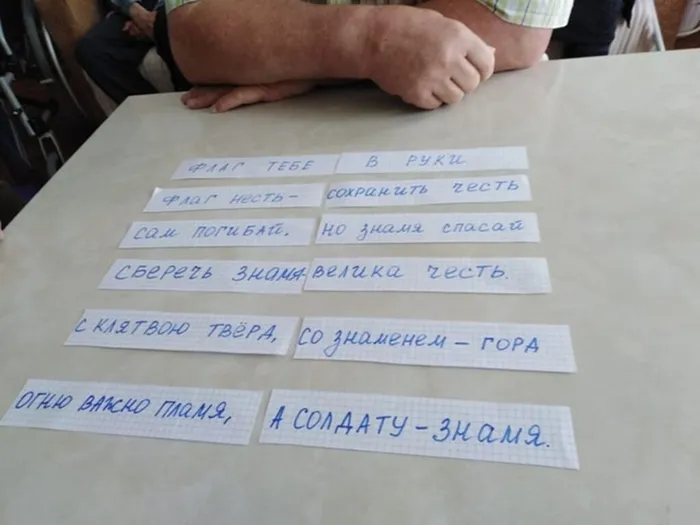 ФЛАГ ТЕБЕ В РУКИ
ФЛАГ НЕСТЬ - СОХРАНИТЬ ЧЕСТЬ
САМ ПОГИБАЙ, НО ЗНАМЯ СПАСАЙ
СБЕРЕЧЬ ЗНАМЯ ВЕЛИКА ЧЕСТЬ.
С КЛЯТВОЮ ТВЁРД, СО ЗНАМЕНЕМ - ГОРД
ОГНЮ ВАЖНО ПЛАМЯ, А СОЛДАТУ - ЗНАМЯ.